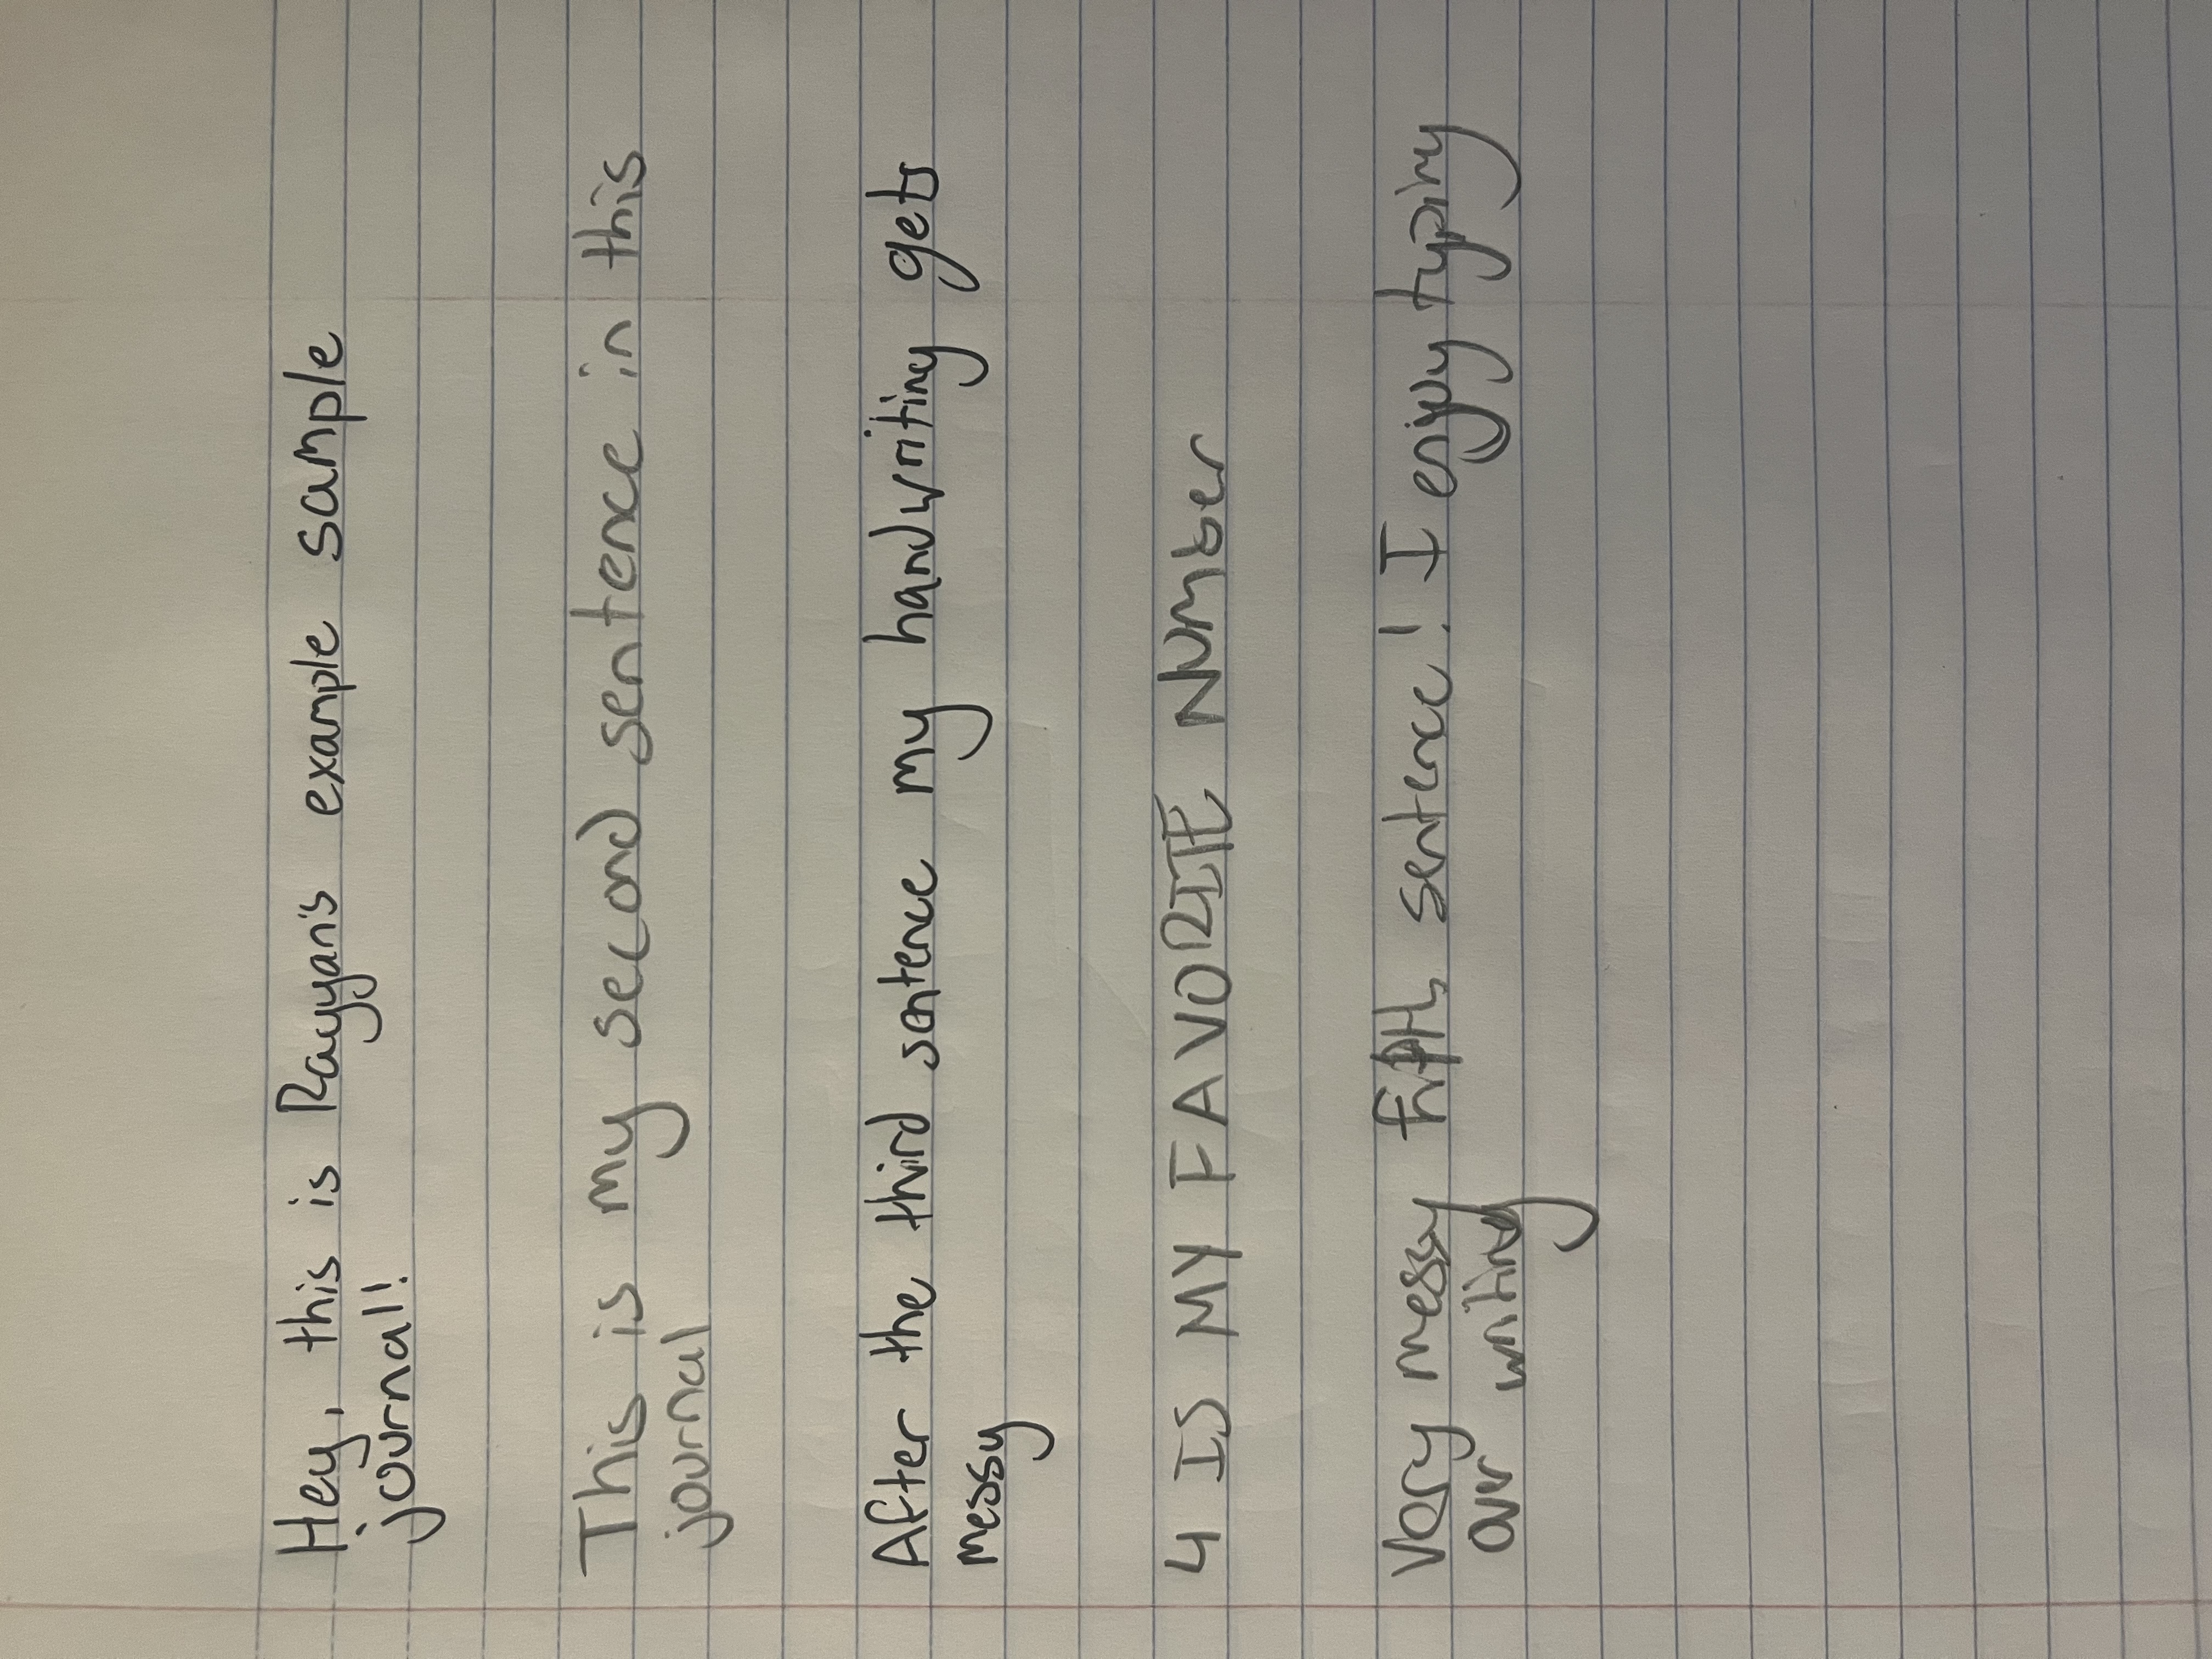 Hey, this is Rayyan's example sample
journal!
This is my second sentence in this
journal
After the third sentence my handwriting gets
messy
4 IS MY FAVORITE NUMber
Very messy fifth sentence! I enjoy typing
over writing